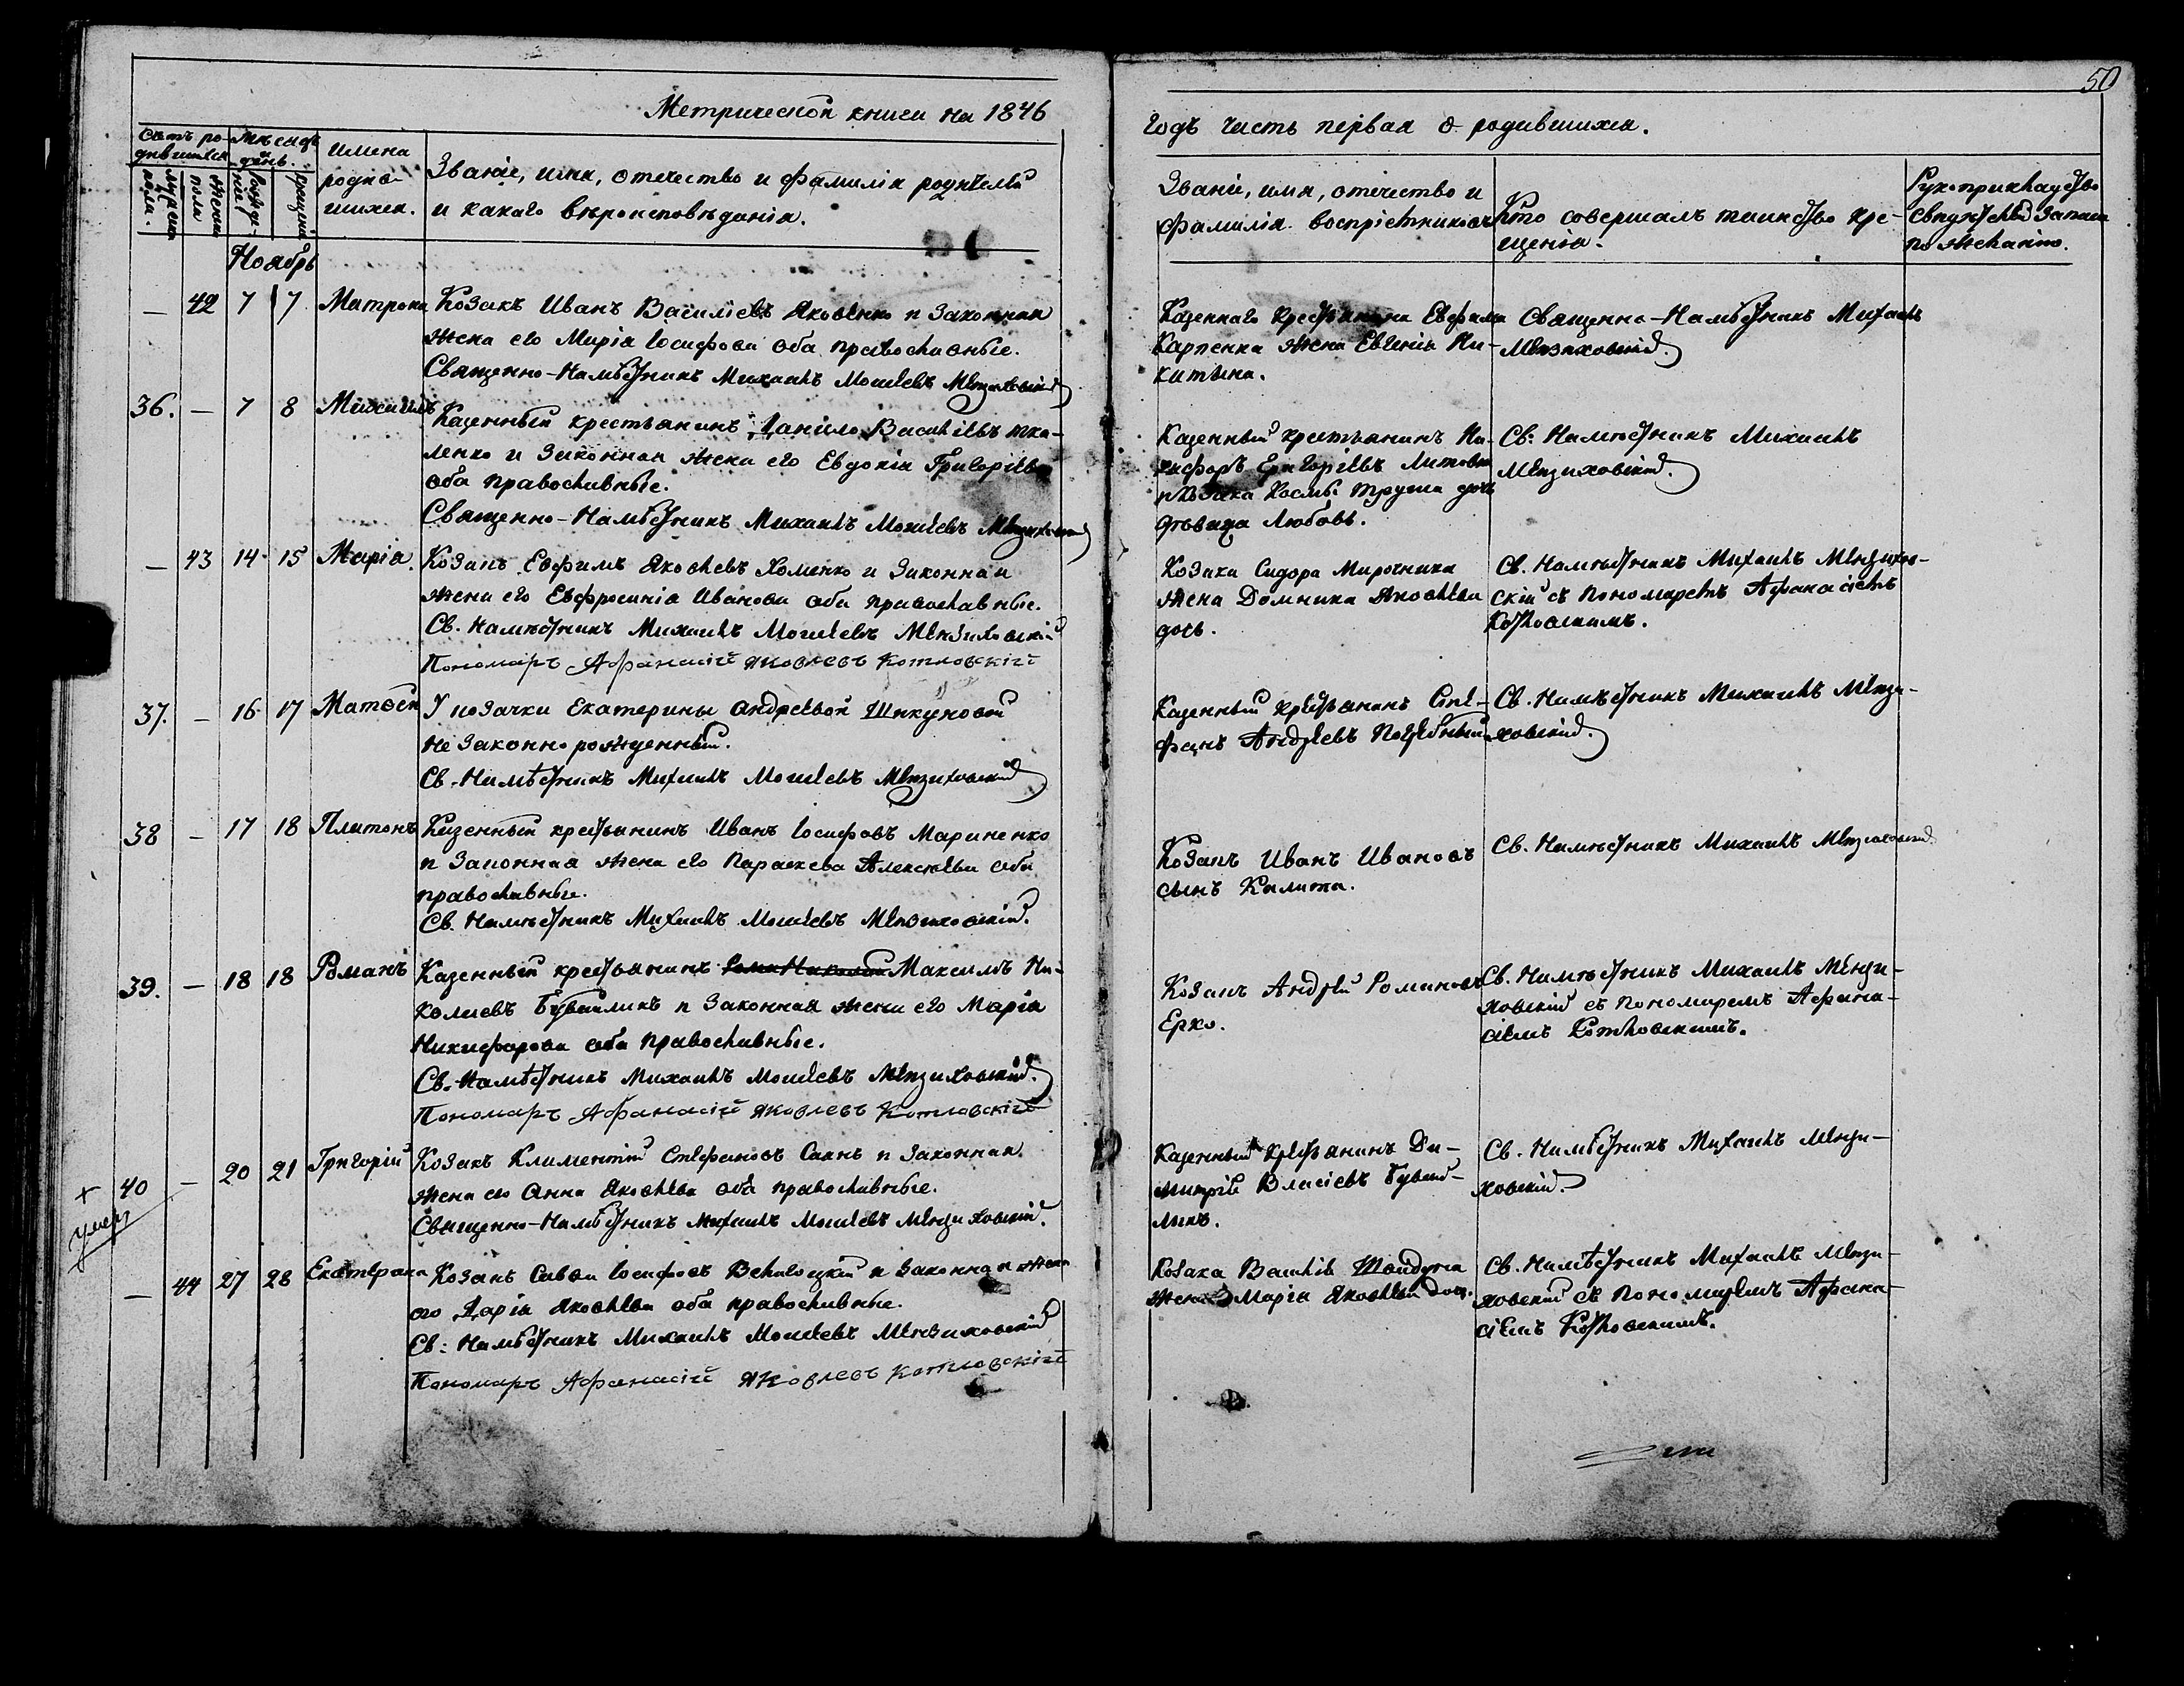 50
Метрической книги на 1846
годъ часть первая о родившихся.
Счетъ ро-
дившихся
Мѣсяцъ
день.
Имена
родив-
шихся.
Званіе, имя, отечество и фамилія родителей
и какаго вѣроисповѣданія.
мужеска
пола.
женска
пола
рожде-
нія
крещенія
Званіе, имя, отечество и
фамилія воспріемниковъ
Кто совершалъ таинство кре-
щенія.
Рукоприкладство
свидѣтелей записи
по желанію.
Ноябрь
— 42 7 7 Матрона Козакъ Иванъ Василіевъ Яковенко и законная
жена его Марія Іосифова оба православные.
Священно-Намѣстникъ Михаилъ Моисеевъ
Казеннаго крестьянина Евфима
Карпенка жена Евгенія Ни-
китина.
Священно-Намѣстникъ Михаилъ
36. — 7 8 Михаилъ Казенный крестьянинъ Данило Василіевъ Тка-
ленко и законная жена его Евдокія Григоріева
оба православные.
Священно-Намѣстникъ Михаилъ Моисеевъ
Казенный крестьянинъ Ни-
кифоръ Григоріевъ
и козака Космы дочь
дѣвица Любовь.
Св: Намѣстникъ Михаилъ
— 43 14 15 Марія. Козакъ Евфимъ Яковлевъ Хоменко и законная
жена его Евфросинія Иванова оба православные.
Св. Намѣстникъ Михаилъ Моисеевъ
Пономаръ Афанасій Яковлевъ Котловскій
Козака Сидора Мирочника
жена Домника Яковлева
дочь.
Св. Намѣстникъ Михаилъ
скій съ пономаремъ Афанасіемъ
Котловскимъ.
37. — 16 17 Матѳей У козачки Екатерины Андреевой Шикуновой
не законно рожденный.
Св. Намѣстникъ Михаилъ Моисеевъ
Казенный крестьянинъ Сте-
фанъ Андреевъ
Св. Намѣстникъ Михаилъ
ховскій.
38 — 17 18 Платонъ Казенный крестьянинъ Иванъ Іосифовъ Мариненко
и законная жена его Параскева Алексѣева оба
православные.
Св. Намѣстникъ Михаилъ Моисеевъ
Козакъ Иванъ Ивановъ
сынъ Калита.
Св. Намѣстникъ Михаилъ
39. — 18 18 Романъ Казенный крестьянинъ Максимъ Ни-
колаевъ Бувайликъ и законная жена его Марія
Никифорова оба православные.
Св. Намѣстникъ Михаилъ Моисеевъ
Пономаръ Афанасій Яковлевъ Котловскій
Козакъ Андрей Романовъ
Ерко.
Св. Намѣстникъ Михаилъ
ховскій съ пономаремъ Афана-
сіемъ Котловскимъ.
+ умеръ
40 — 20 21 Григорій Козакъ Климентій Стефановъ Саенъ и законная
жена его Анна Яковлева оба православные.
Священно-Намѣстникъ Михаилъ Моисеевъ
Казенный крестьянинъ Ди-
митрій Власіевъ Бувай-
ликъ.
Св. Намѣстникъ Михаилъ
ховскій.
— 44 27 28 Екатерина Козакъ Савва Іосифовъ и законная жена
его Дарія Яковлева оба православные.
Св: Намѣстникъ Михаилъ Моисеевъ
Пономаръ Афанасій Яковлевъ Котловскій
Козака Василія
жена Марія Яковлева дочь.
Св. Намѣстникъ Михаилъ
ховскій съ пономаремъ Афана-
сіемъ Котловскимъ.